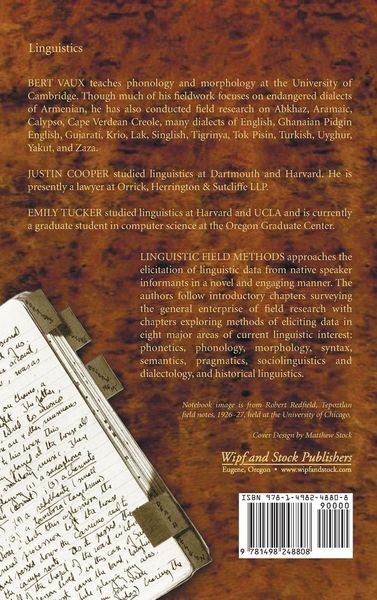 Linguistics
BERT VAUX teaches phonology and morphology at the University of
Cambridge. Though much of his fieldwork focuses on endangered dialects
of Armenian, he has also conducted field research on Abkhaz, Aramaic,
Calypso, Cape Verdean Creole, many dialects of English, Ghanaian Pidgin
English, Gujarati, Krio, Lak, Singlish, Tigrinya, Tok Pisin, Turkish, Uyghur,
Yakut, and Zaza.
JUSTIN COOPER studied linguistics at Dartmouth and Harvard. He is
presently a lawyer at Orrick, Herrington & Sutcliffe LLP.
EMILY TUCKER studied linguistics at Harvard and UCLA and is currently
a graduate student in computer science at the Oregon Graduate Center.
LINGUISTIC FIELD METHODS approaches the
elicitation of linguistic data from native speaker
informants in a novel and engaging manner. The
authors follow introductory chapters surveying
the general enterprise of field research with
chapters exploring methods of eliciting data in
eight major areas of current linguistic interest:
phonetics, phonology, morphology, syntax,
semantics, pragmatics, sociolinguistics and
dialectology, and historical linguistics.
Notebook image is from Robert Redfield, Tepoztlan
field notes, 1926-27, held at the University of Chicago.
Cover Design by Matthew Stock
Wipf and Stock Publishers
Eugene, Oregon • www.wipfandstock.com
ISBN 978-1-4982-4880-8
90000
9 781498 248808